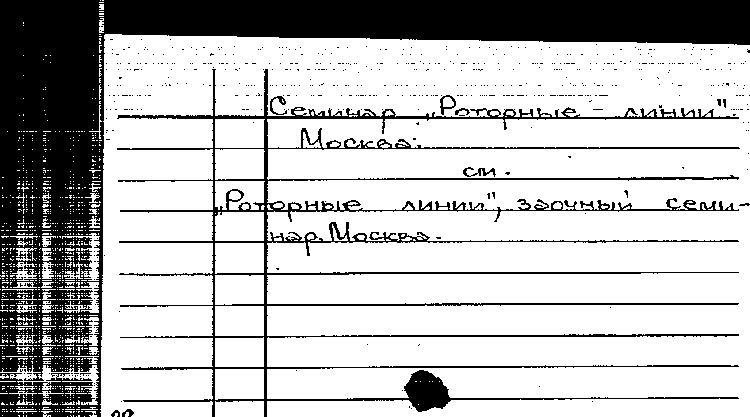 Семинар „Роторные - линии".
Москва.
см.
„Роторные линии", заочный семи-
нар. Москва.